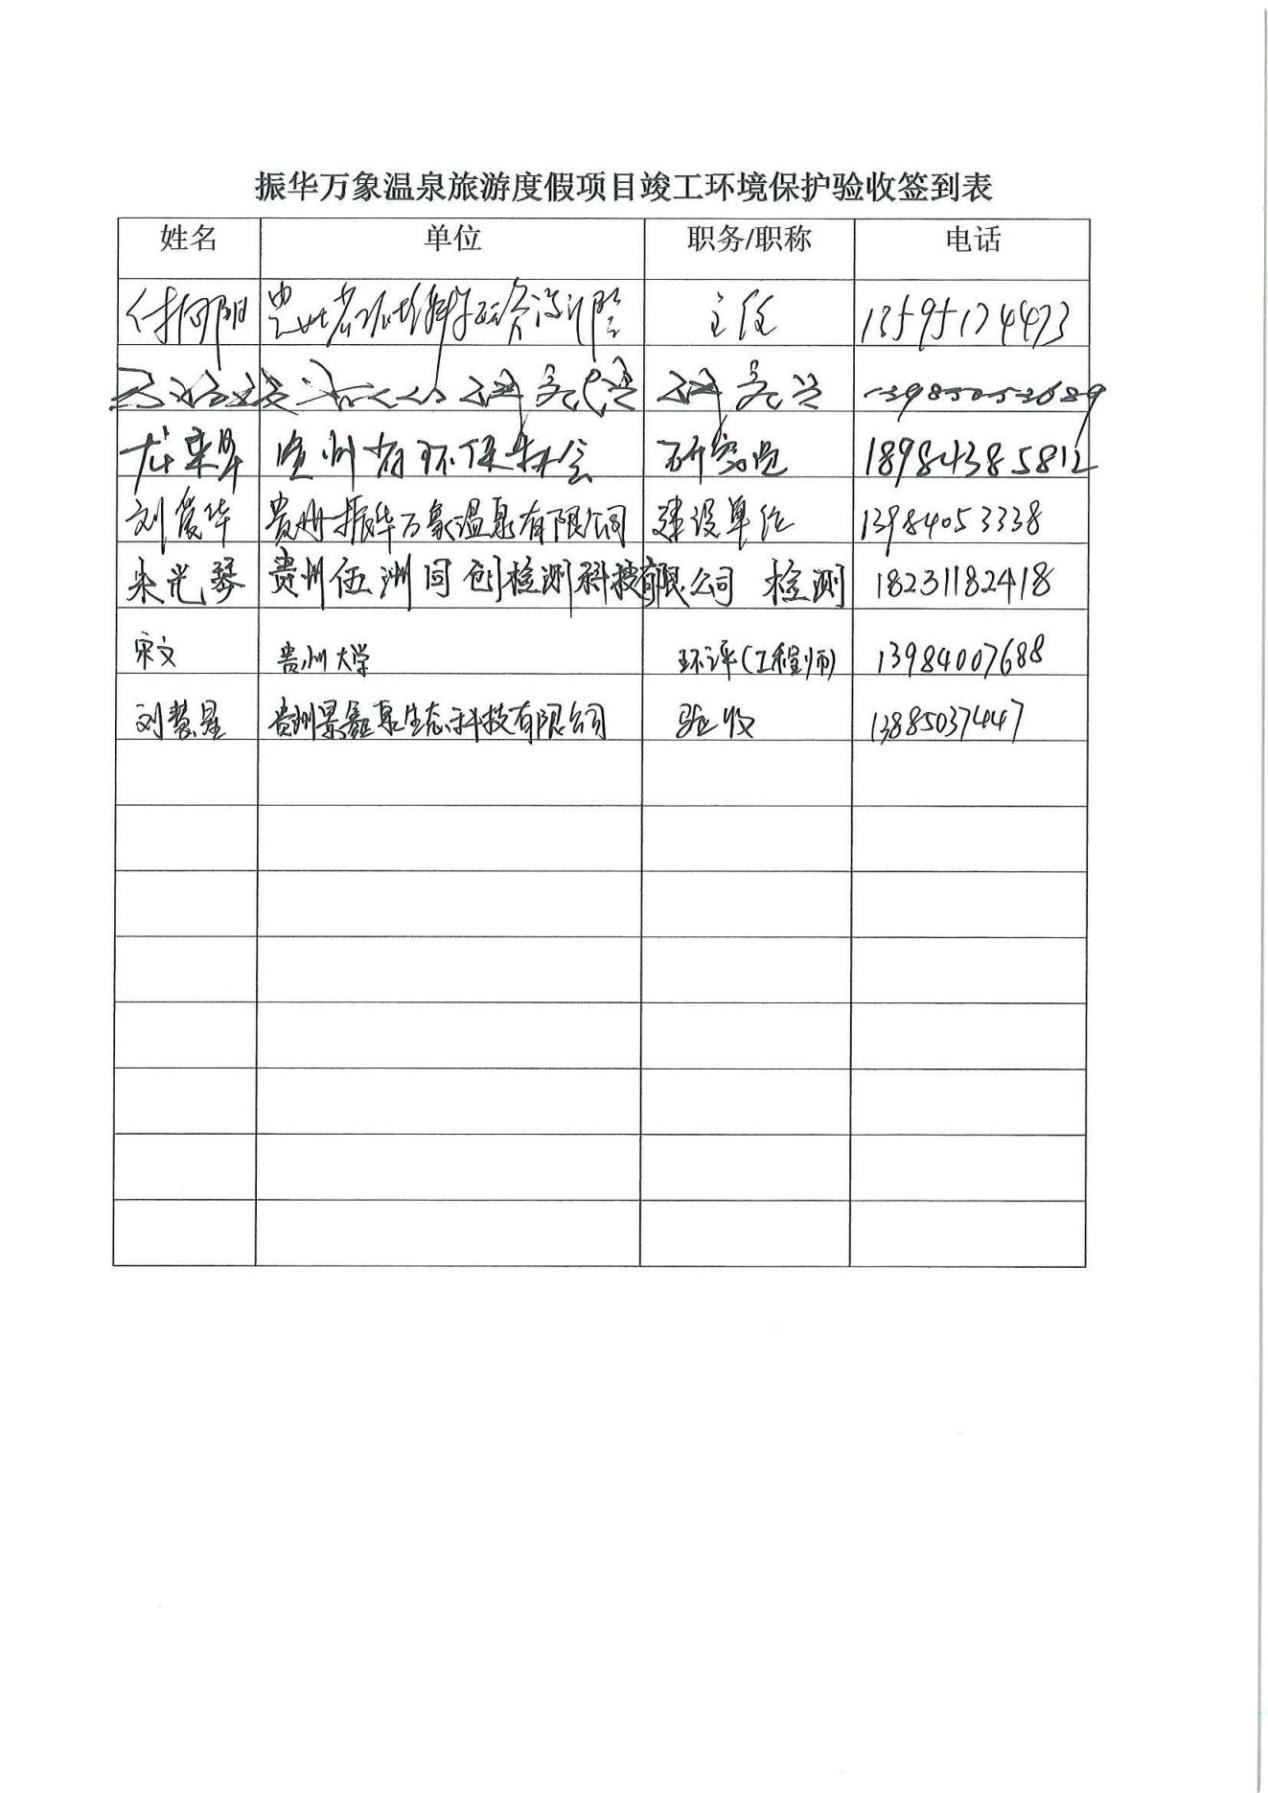 振华万象温泉旅游度假项目竣工环境保护验收签到表
姓名 单位 职务/职称 电话
付向阳 贵州省环境科学研究设计院 主任 13595174473
研究员 13985053689
龙来早 贵州省环保协会 研究员 18984385812
刘爱华 贵州振华万象温泉有限公司 建设单位 13984053338
朱光琴 贵州伍洲同创检测科技有限公司 检测 18231182418
宋文 贵州大学 环评(工程师) 13984007688
刘慧星 贵州景鑫泉生态科技有限公司 验收 13885037447